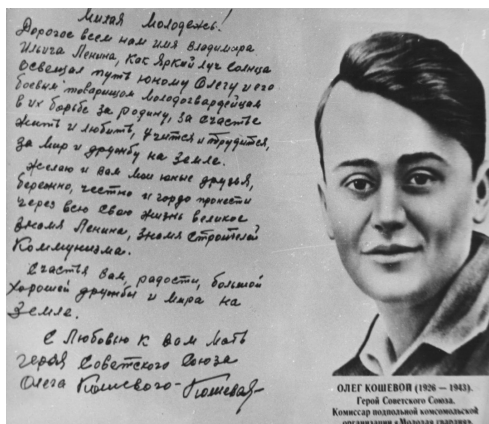 Милая Молодежь!
Дорогое всем нам имя Владимира
Ильича Ленина, как яркий луч солнца
освещал путь юному Олегу и его
боевым товарищам молодогвардейцам
в их борьбе за родину, за счастье
жить и любить, учится и трудится,
за мир и дружбу на земле.
Желаю и вам мои юные друзья,
бережно, честно и гордо пронести
через всю свою жизнь великое
знамя Ленина, знамя строителей
Коммунизма.
Счастья вам, радости, большой
хорошей дружбы и мира на
Земле.
С Любовью к вам мать
героя Советского Союза
Олега Кошевого - Кошевая
ОЛЕГ КОШЕВОЙ (1926 — 1943).
Герой Советского Союза.
Комиссар подпольной комсомольской
организации «Молодая гвардия».